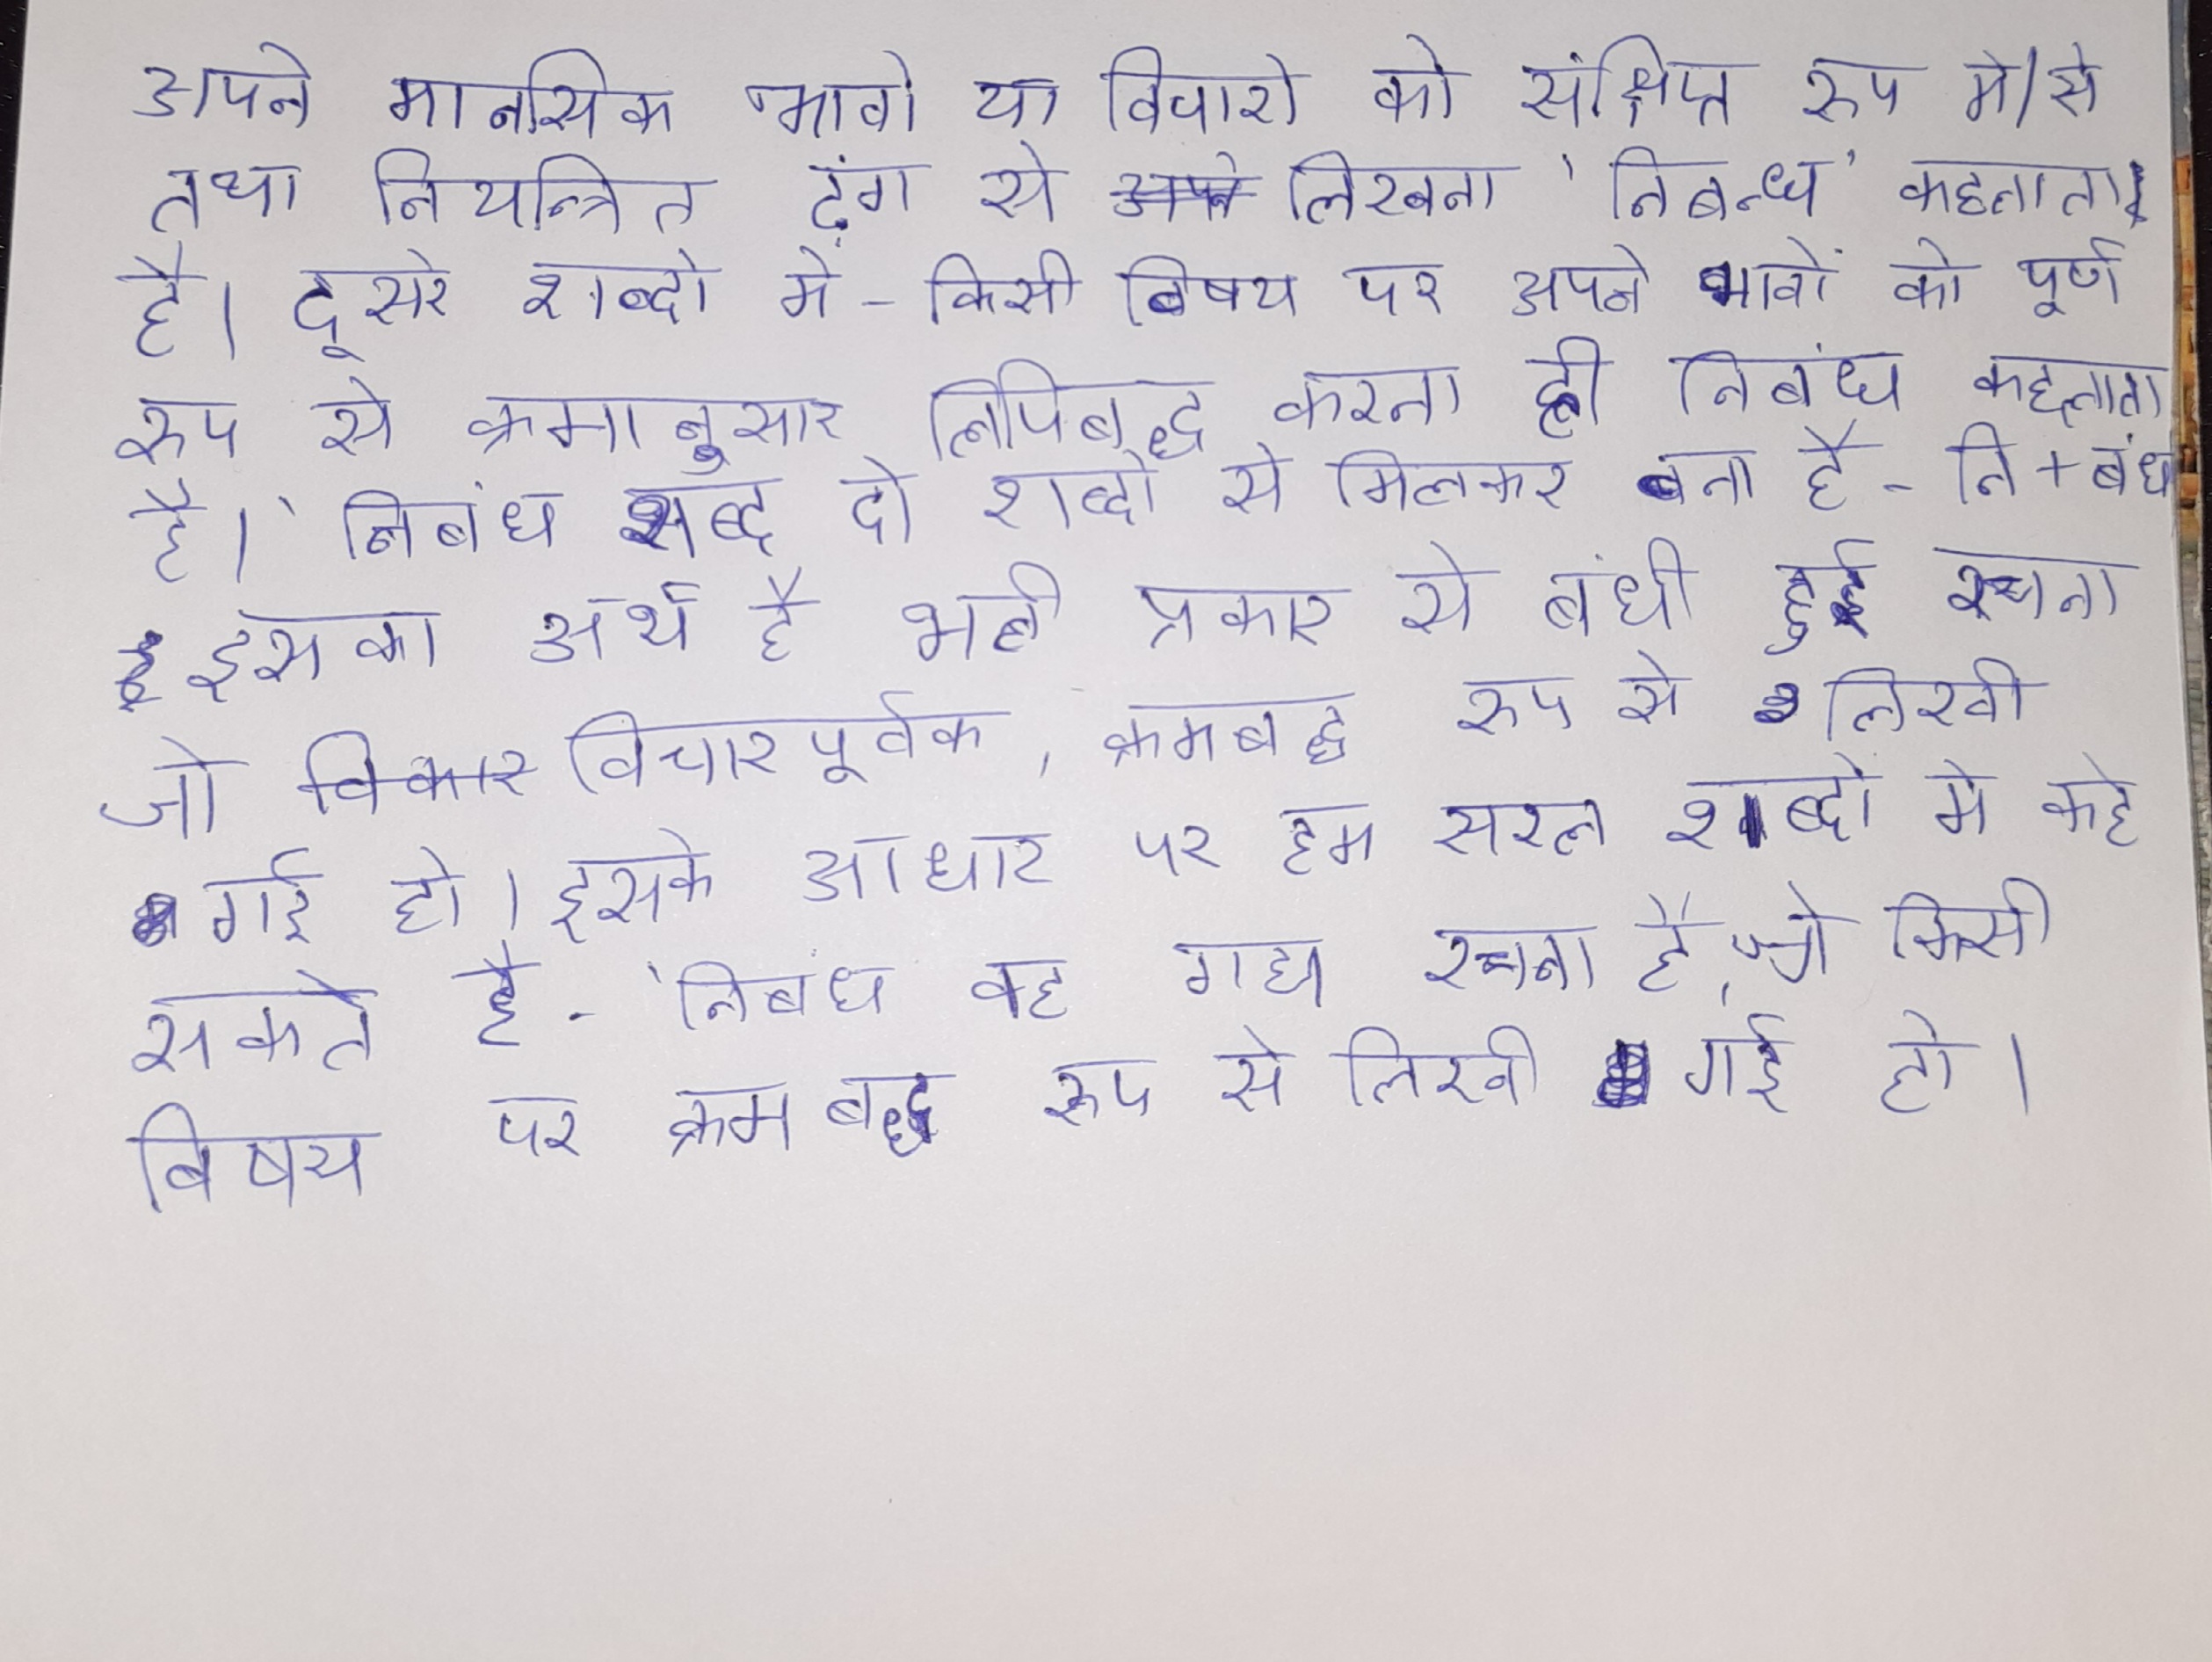 अपने मानसिक भावो या विचारो को संक्षिप्त रूप मे/से
तथा नियन्त्रित ढ़ंग से अपने लिखना 'निबन्ध' कहलाता
है। दूसरे शब्दो मे - किसी विषय पर अपने भावों को पूर्ण
रूप से क्रमानुसार लिपिबद्ध करना ही निबंध कहलाता
है। 'निबंध शब्द दो शब्दो से मिलकर बना है - नि + बंध
इसका अर्थ है भली प्रकार से बंधी हुई रचना
जो विकार विचारपूर्वक, क्रमबद्ध रूप से लिखी
गई हो। इसके आधार पर हम सरल शब्दों मे कहे
सकते है - 'निबंध वह गद्य रचना है, जो किसी
विषय पर क्रम बद्ध रूप से लिखी गई हो।